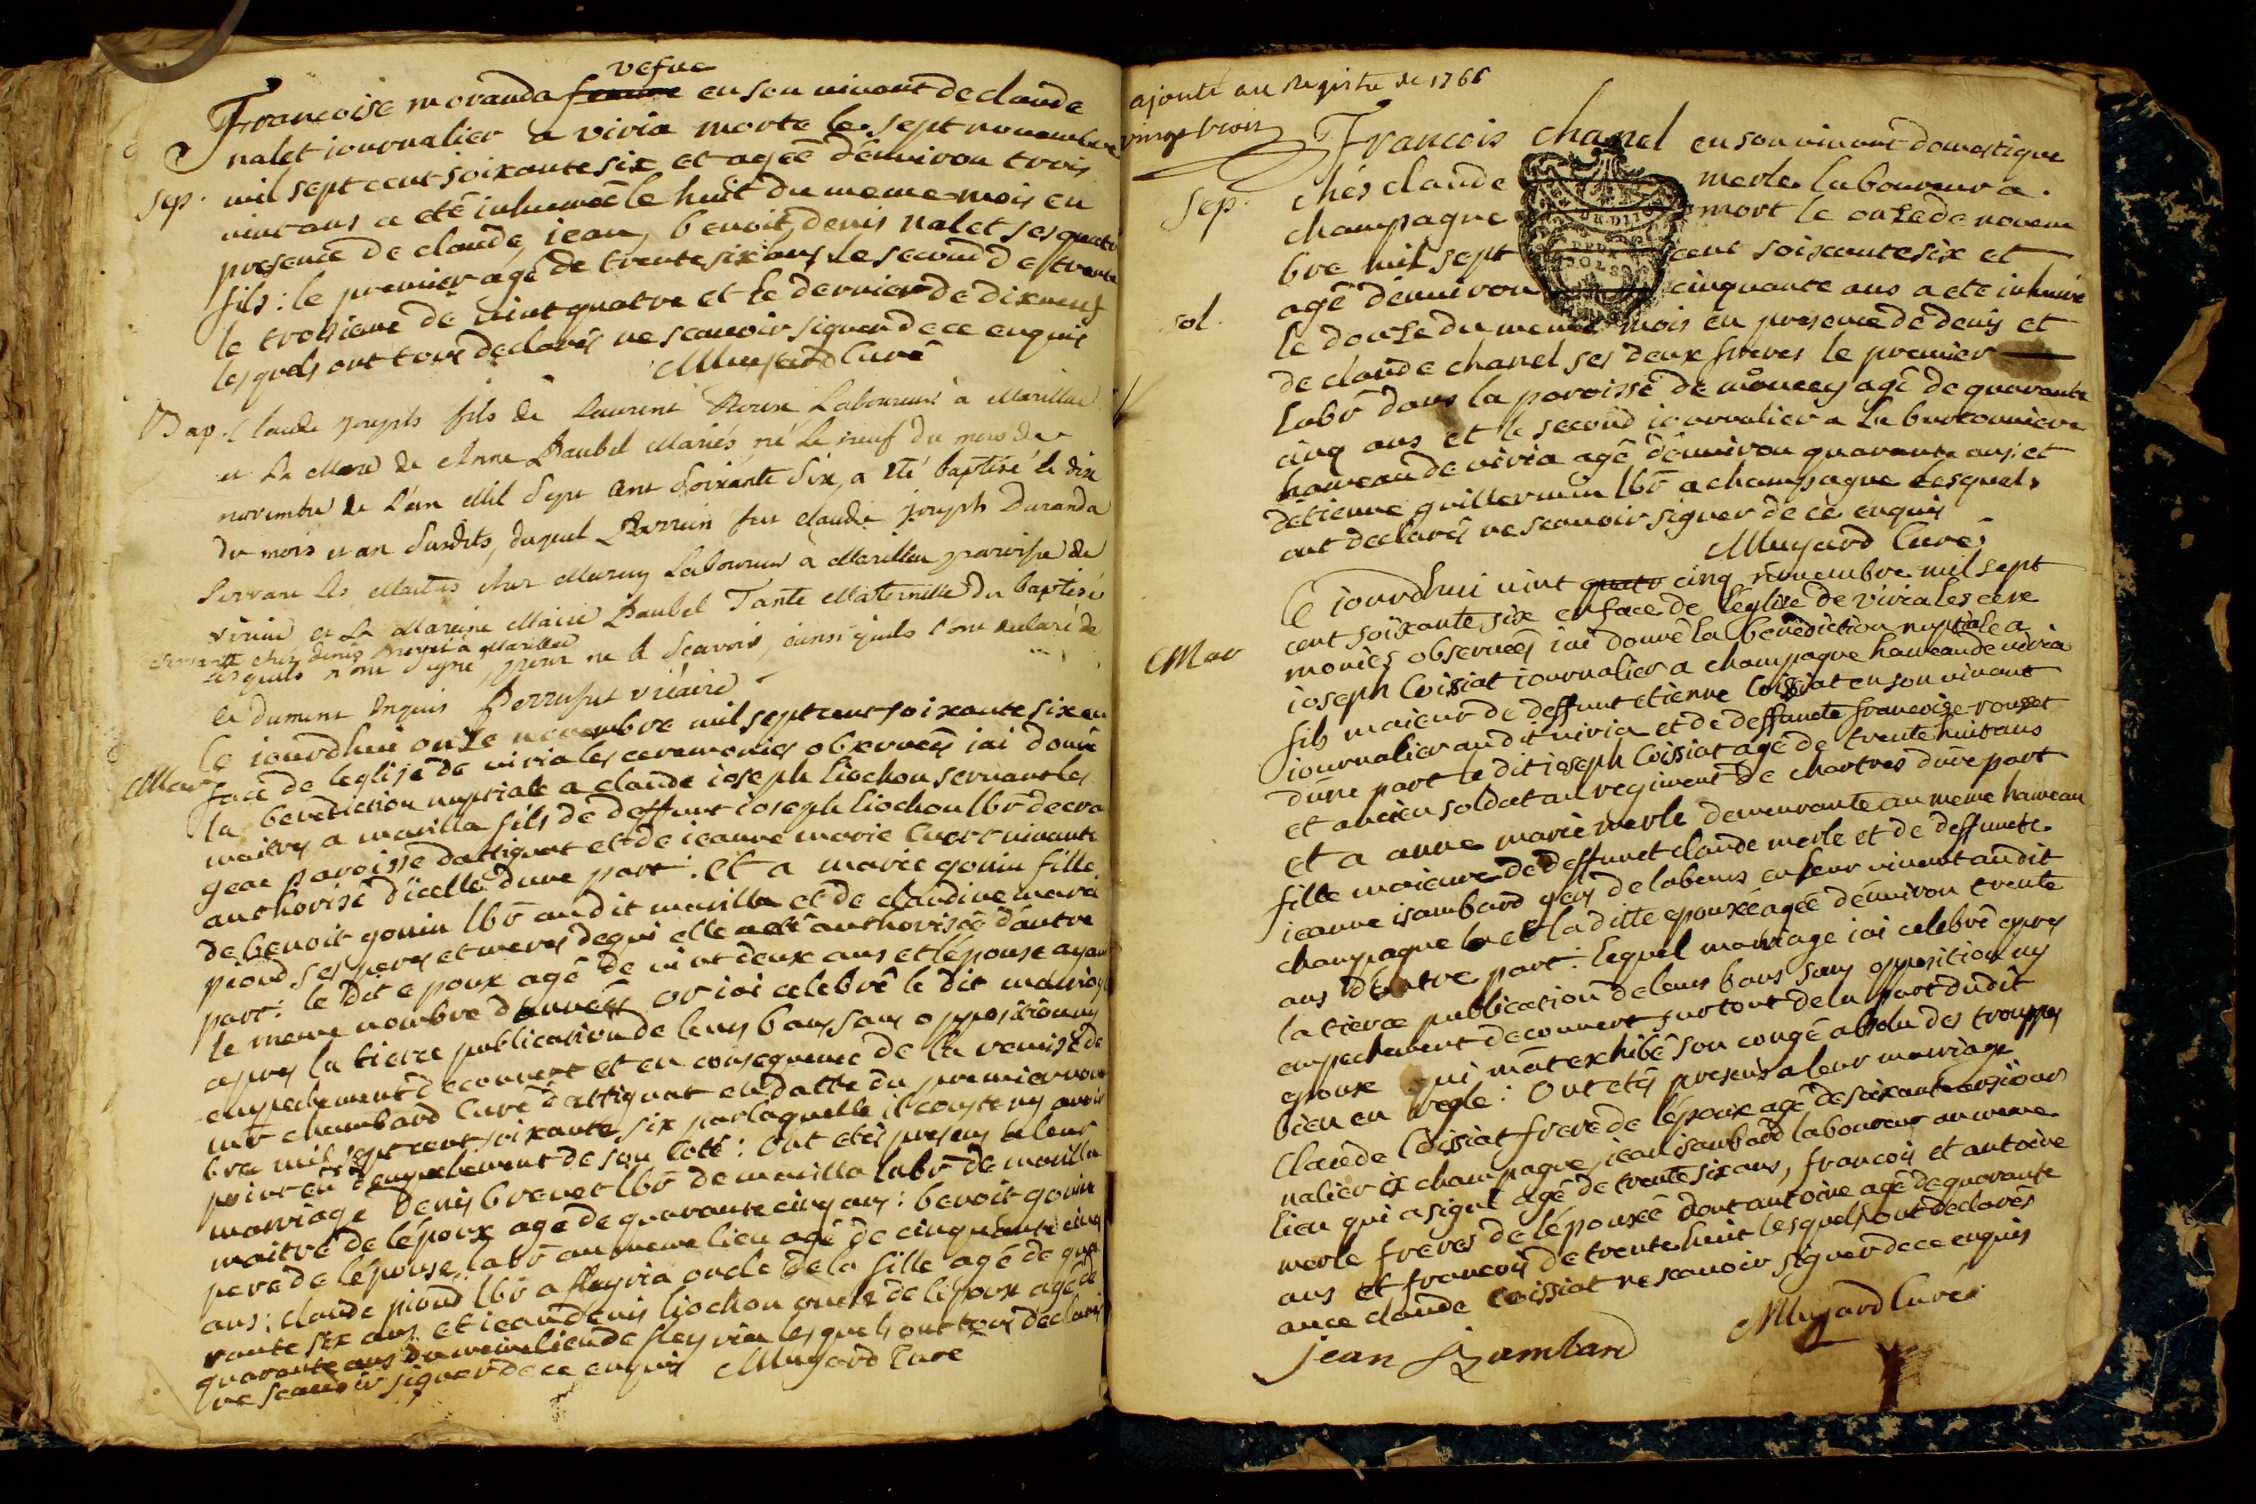 vefue
Francoise moranda femme en son vivant de claude
nalet iournalier a viria morte le sept novembre
Sep. mil sept cent soixante six et agée d'environ trois
vint ans a eté inhumée le huit du meme mois en
presence de claude, iean, benoit, denis nalet ses quatre
fils: le premier agé de trente six ans le second de trente
le troisieme de vint quatre et le dernier de dixneuf
lesquels ont tous declarés ne scavoir signer de ce enquis
Mugard Curé
Bap. Claude Joseph fils de Laurent Roux Laboureur à Marillia
et La Mere de Anne Baubel Mariés né Le neuf du mois de
novembre de L'an Mil Sept Cent Soixante Six, a été baptisé le dix
du mois et an Susdits, duquel Parrain fut claude joseph Duranda
Servant les Maitres chez Laboureur à Marillia paroisse de
viria et La Mareine Marie Baubel Tante Maternelle du baptisé
Servante chez denis Brevet à Marillia
Lesquels n'ont Signé, pour ne le Scavoir, ainsi quils l'ont declaré de
ce dument Enquis vicaire
Le iourdhui onze novembre mil sept cent soixante six en
Mar face de leglise de viria les ceremonies observées iai donné
la benediction nuptiale a claude ioseph liochon servant les
maitres a marilla fils de deffunt ioseph liochon lbr de cra
geac paroisse dattignat et de ieanne marie vivante
authorisé d'icelle d'une part: et a marie gonin fille
de benoit gonin lbr audit marilla et de claudine marie
piond ses peres et meres de qui elle a eté authorisée d'autre
part: le dit epoux agé de vint deux ans et l'epouse ayant
le meme nombre d'années or iai celebré le dit mariage
apres la tierce publication de leurs bans sans opposition ny
empechement decouvert et en consequence de la remise de
mr chambard Curé d'attignat en datte du premier novem
bre mil sept cent soixante six par laquelle il conste ny avoir
point eu d'empechement de son coté: Ont etés presens a leur
mariage denis brevet lbr de marilla labr de marilla
maitre de l'epoux agé de quarante cinq ans: benoit gonin
pere de l'epouse labr au meme lieu agé de cinquante cinq
ans: claude piond lbr a fleyria oncle de la fille agé de qua
rante six ans et iean denis liochon oncle de l'epoux agé de
quarante ans du meme lieu de fleyria lesquels ont tous declarés
ne scavoir signer de ce enquis Mugard Curé
ajouté au Registre de 1766
vingt trois
Francois chanel en son vivant domestique
Sep. chés claude merle laboureur a
champagne mort le onze de novem
bre mil sept cent soixante six et
sol. agé d'environ cinquante ans a eté inhumé
le douze du meme mois en presence de denis et
de claude chanel ses deux freres le premier
labr dans la paroisse de agé de quarante
cinq ans et le second iournalier a la
hameau de viria agé d'environ quarante ans: et
d'etienne guillermin lbr a champagne lesquels
ont declarés ne scavoir signer de ce enquis
Mugard Curé
Ce iourdhui vint quatr cinq novembre mil sept
cent soixante six en face de l'eglise de viria les cere
Mar monies observées iai donné la benediction nuptiale a
ioseph Coissiat iournalier a champagne hameau de viria
fils maieur de deffunt etienne Coissiat en son vivant
iournalier audit viria et de deffuncte francoise rousset
d'une part le dit ioseph Coissiat agé de trente huit ans
et ancien soldat au regiment de chartres d'une part
et a anne marie merle demeurante au meme hameau
fille maieure de deffunct claude merle et de deffuncte
ieanne isambard gens de labeurs en leur vivant audit
champagne et la ditte epousée agée d'environ trente
ans d'autre part: lequel mariage iai celebré apres
la tierce publication de leurs bans sans opposition ny
empechement decouvert surtout de la part du dit
epoux qui m'at exhibé son congé absolu des trouppes
bien en regle: Ont etés presens a leur mariage
Claude Coissiat frere de l'epoux agé de soixante ans iour
nalier a champagne, iean isambard laboureur au meme
lieu qui a signé agé de trente six ans, francois et antoine
merle freres de l'epousée dont antoine agé de quarante
ans et francois de trente huit lesquels ont declarés
avec claude Coissiat ne scavoir signer de ce enquis
jean Izambard Mugard Curé